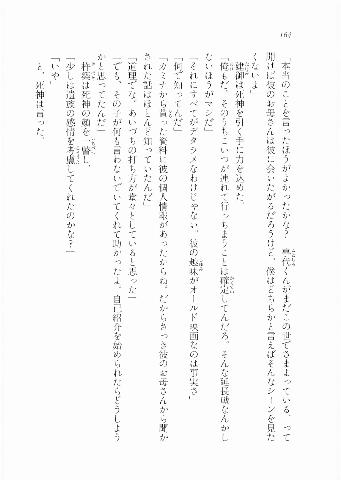 164
「本当のことを言ったほうがよかったかな？　喪代くんがまだこの世でさまよっている、って
聞けば彼のお母さんは彼に会いたがるだろうけど、僕はどちらかと言えばそんなシーンを見た
くないよ」
建御は死神を引く手に力を込めた。
「俺もだ。そのうちこいつが連れて行っちまうことは確定してんだろ。そんな延長戦なんかし
ないほうがマシだ」
「それにすべてがデタラメなわけじゃない。彼の趣味がオールド映画なのは事実さ」
「何で知ってんだ」
「カミナから貰った資料に彼の個人情報があったからね。だからさっき彼のお母さんから聞か
された話はほとんど知っていたんだ」
「道理でな。あいづちの打ち方が堂々としていると思った」
「でも、その子が何も言わないでいてくれて助かったよ。自己紹介を始められたらどうしよう
かと思ってたんだ」
柊薬は死神の顔を一瞥し、
「少しは遺族の感情を考慮してくれたのかな？」
「いや」
と、死神は言った。